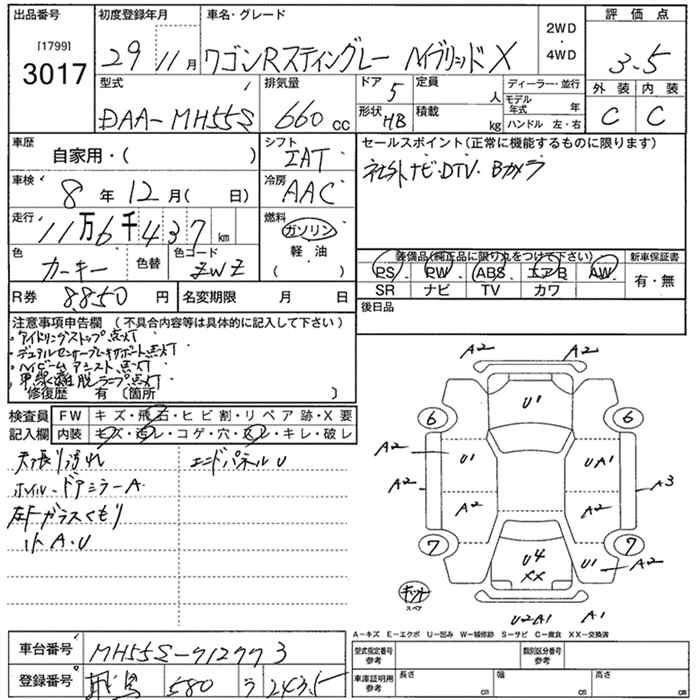 出品番号 初度登録年月 車名・グレード 2WD・4WD 評価点
[1799]
3017 29 11月 ワゴンRスティングレー ハイブリッドX 3.5
型式 排気量 ドア 5 定員 人 ディーラー・並行 外装 内装
DAA-MH55S 660cc 形状 HB 積載 kg モデル年式 年 C C
ハンドル 左・右
車歴 シフト セールスポイント(正常に機能するものに限ります)
自家用・( ) IAT 社外ナビ・DTV・Bカメラ
車検 冷房
8年12月( 日) AAC
走行 燃料
11万6千437km ガソリン
色 色替 色コード 軽油
カーキー ZWZ ( )
装備品(純正品に限り丸をつけて下さい) 新車保証書
PS PW ABS エアB AW 有・無
SR ナビ TV カワ
R券 8850円 名変期限 月 日 後日品
注意事項申告欄 (不具合内容等は具体的に記入して下さい)
・アイドリングストップ点灯
・デュアルセンサーブレーキサポート点灯
・ハイビームアシスト点灯
・車線逸脱ランプ点灯
修復歴 有 〔箇所 〕
検査員記入欄 FW キズ・飛石・ヒビ割・リペア跡・X要
内装 キズ・汚レ・コゲ・穴・スレ・キレ・破レ
天張り汚れ エンドパネルU
ホイル・ドアミラーA
左Fガラスくもり
A.U
A2 A2
U1
6 6
A2 U1 UA1
A2 A3
A2 A2
7 7
U4 XX U1 A2
スペア
U2A1 A1
A-キズ E-エクボ U-凹み W-補修跡 S-サビ C-腐食 XX-交換済
車台番号 MH55S-712773
登録番号 580 う 243.5
型式指定番号 参考 類別区分番号 参考
車庫証明用 参考 長さ cm 幅 cm 高さ cm